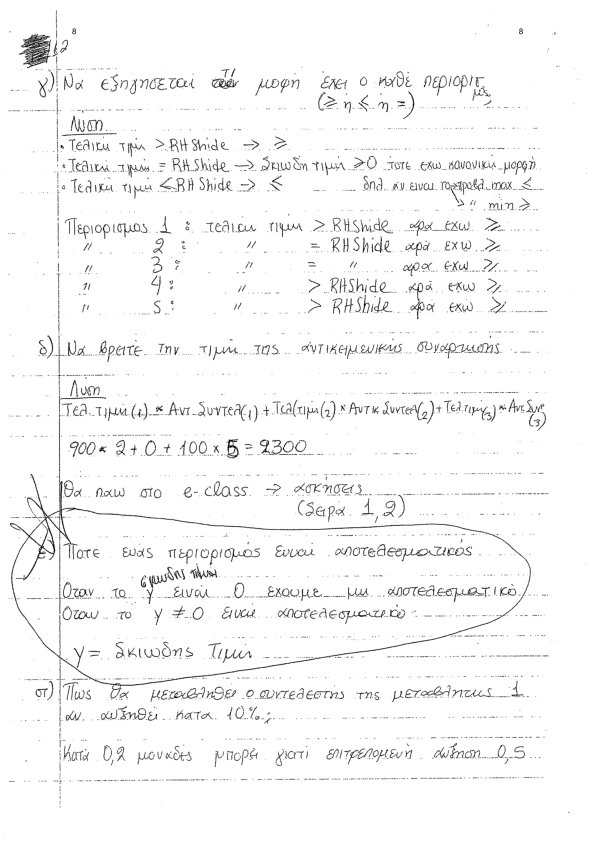 8
8
12
γ) Να εξηγησεται τι μοφή έχει ο καθέ περιορισμος,
(≥ η ≤ ή =)
Λυση
• Τελική τιμή > RHShide → ≥
• Τελική τιμή = RHShide → Σκιωδη τιμή ≥0 τοτε εχω κανονική μορφή
• Τελική τιμή < RHShide → ≤ δηλ αν ειναι προβλ. max ≤
" min ≥
Περιορισμος 1 : τελικη τιμή > RHShide αρα εχω ≥
" 2 : " = RHShide αρά εχω ≥
" 3 : " = " αρα εχω ≥
" 4 : " > RHShide αρά εχω ≥
" 5 : " > RHShide αρά εχω ≥
δ) Να βρειτε την τιμή της αντικειμενικής συναρτησης
Λυση
Τελ. τιμή(1) × Αντ. Συντελ(1) + Τελ(τιμή(2) × Αντικ Συντελ(2) + Τελ τιμή(3) × Αντ. Συντ(3)
900 × 2 + 0 + 100 × 5 = 2300
Θα παω στο e-class → ασκήσεις
(Σειρά 1,2)
ε) Ποτε ενας περιορισμός ειναι αποτελεσματικός
σκιωδης τιμή
Οταν το γ ειναι 0 εχουμε μη αποτελεσματικό
Οταν το γ ≠ 0 ειναι αποτελεσματικό
γ = Σκιωδης Τιμή
στ) Πως θα μεταβληθεί ο συντελεστής της μεταβλητης 1
αν αυξηθεί κατα 10% ;
Κατά 0,2 μοναδες μπορεί γιατί επιτρεπομενή αυξηση 0,5